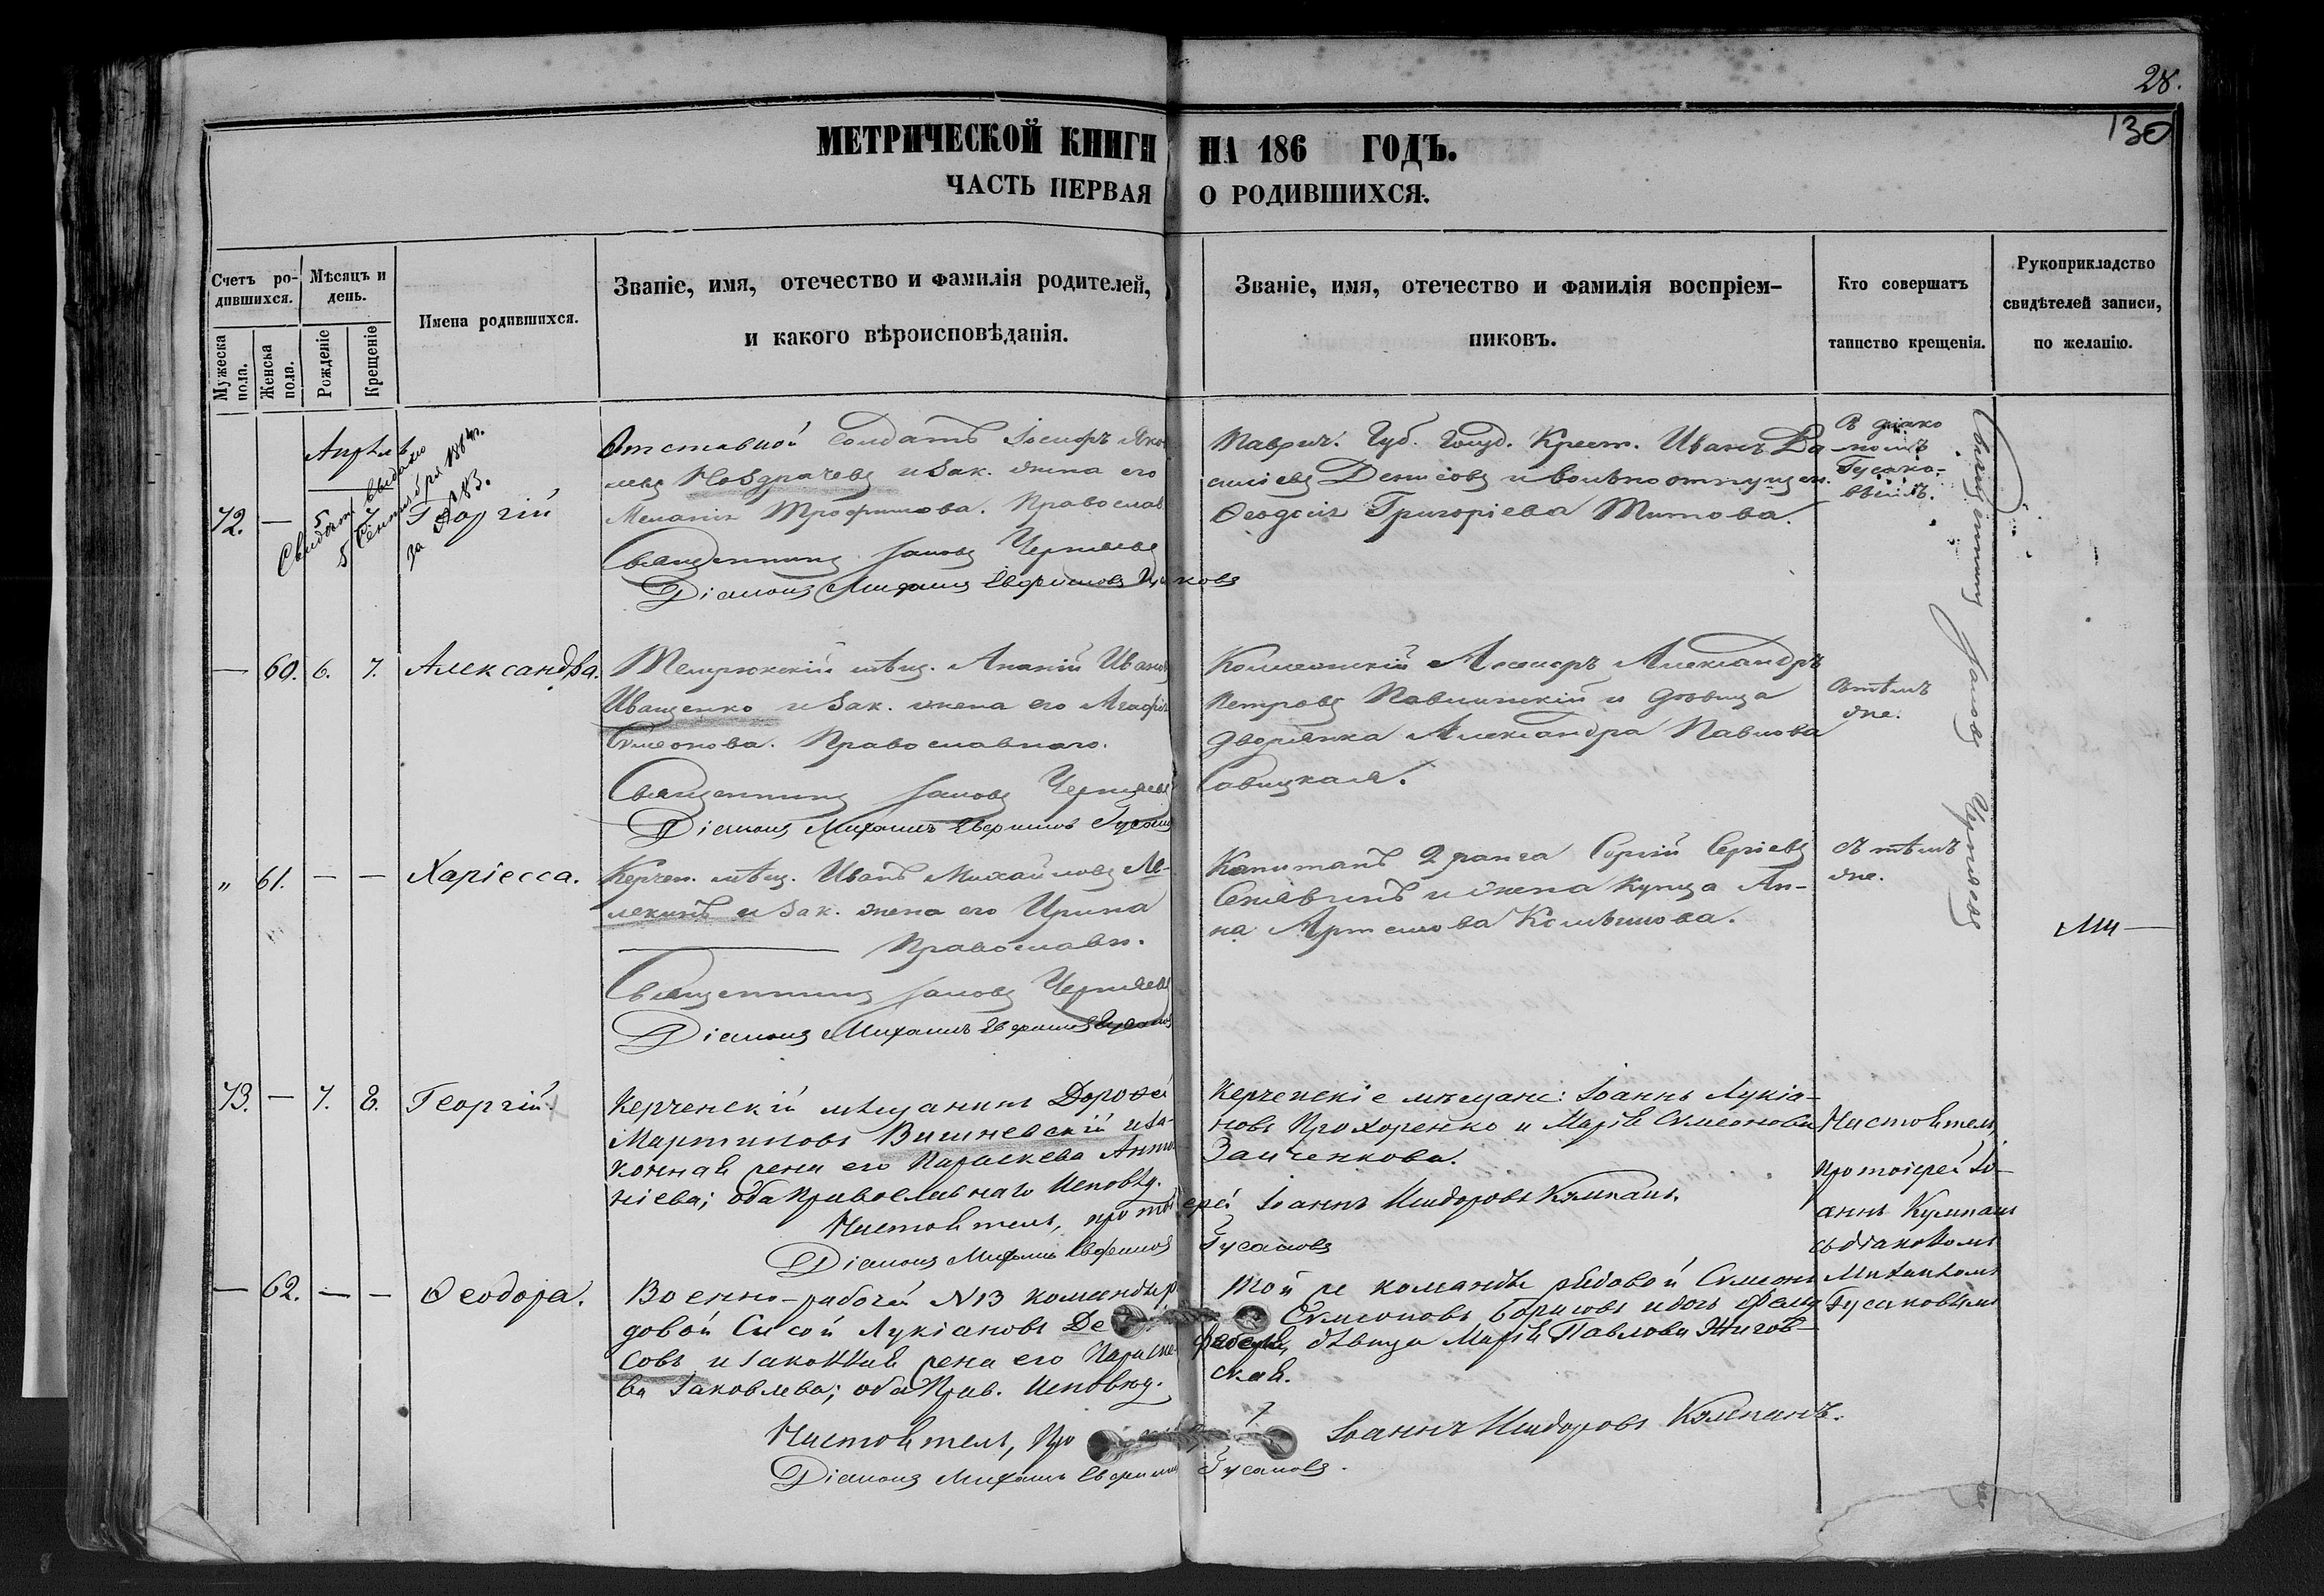 28.
130
МЕТРИЧЕСКОЙ КНИГИ НА 186 ГОДЪ.
ЧАСТЬ ПЕРВАЯ О РОДИВШИХСЯ.
Счетъ ро-
дившихся.
Мужеска
пола.
Женска
пола.
Мѣсяцъ и
день.
Рожденіе
Крещеніе
Имена родившихся.
Званіе, имя, отечество и фамилія родителей,
и какого вѣроисповѣданія.
Званіе, имя, отечество и фамилія воспріем-
никовъ.
Кто совершатъ
таинство крещенія.
Рукоприкладство
свидѣтелей записи,
по желанію.
Апрѣль
72. — 5
Георгій
Свидѣт. выдано
5 Сентября 1884 г.
за № 83.
Отставной Солдатъ Іосифъ Яков
левъ Ноздрачевъ и зак. жена его
Меланія Трофимова. Православ
Священникъ Іаковъ Черняевъ
Діаконъ Михаилъ Евфимовъ
Таврич. Губ. Госуд. Крест. Иванъ Ва
силіевъ Денисовъ и вольноотпущен.
Ѳеодосія Григоріева Титова.
Съ діако
номъ
Гусако-
вымъ.
Священникъ Іаковъ Черняевъ
— 60. 6. 7. Александра.
Темрюкскій мѣщ. Ананій Иванов
Иващенко и зак. жена его Агафія
Симеонова. Православнаго.
Священникъ Іаковъ Черняевъ
Діаконъ Михаилъ Евфимовъ Гусаковъ
Коллежскій Ассесоръ Александръ
Петровъ Павлинскій и дѣвица
дворянка Александра Павлова
Савицкая.
Съ тѣмъ
же.
„ 61. — — Харіесса.
Керчен. мѣщ. Иванъ Михайловъ Ле-
мекинъ и зак. жена его Ирина
— Православн.
Священникъ Іаковъ Черняевъ
Діаконъ Михаилъ Евфимовъ Гусаковъ
Капитанъ 2 ранга Сергій Сергіевъ
Сенявинъ и жена купца Ан-
на Артемова Колѣшова.
Съ тѣмъ
же.
73. — 7. 8. Георгій.
Керченскій мѣщанинъ Дороѳей
Мартиновъ Вишневскій и за-
конная жена его Параскева Анто
ніева; оба православнаго исповѣд.
Настоятель, протоіерей Іоаннъ Исидоровъ Кумпанъ.
Діаконъ Михаилъ Евфимовъ Гусаковъ
Керченскіе мѣщане: Іоаннъ Лукіа-
новъ Прохоренко и Марія Симеонова
Заиченкова.
Настоятель,
протоіерей Іо-
аннъ Кумпанъ
съ діакономъ
Михаиломъ
Гусаковымъ
— 62. — — Ѳеодора.
Военно-рабочей № 13 команды ря
довой Сисой Лукіановъ Де
совъ и законная жена его Параске
ва Іаковлева; оба прав. исповѣд.
Настоятель, Про Іоаннъ Исидоровъ Кумпанъ.
Діаконъ Михаилъ Евфимовъ Гусаковъ.
Той же команды рядовой Симеонъ
Симеоновъ Борисовъ и дочь
дѣвица Марія Павлова Жигов-
ская.